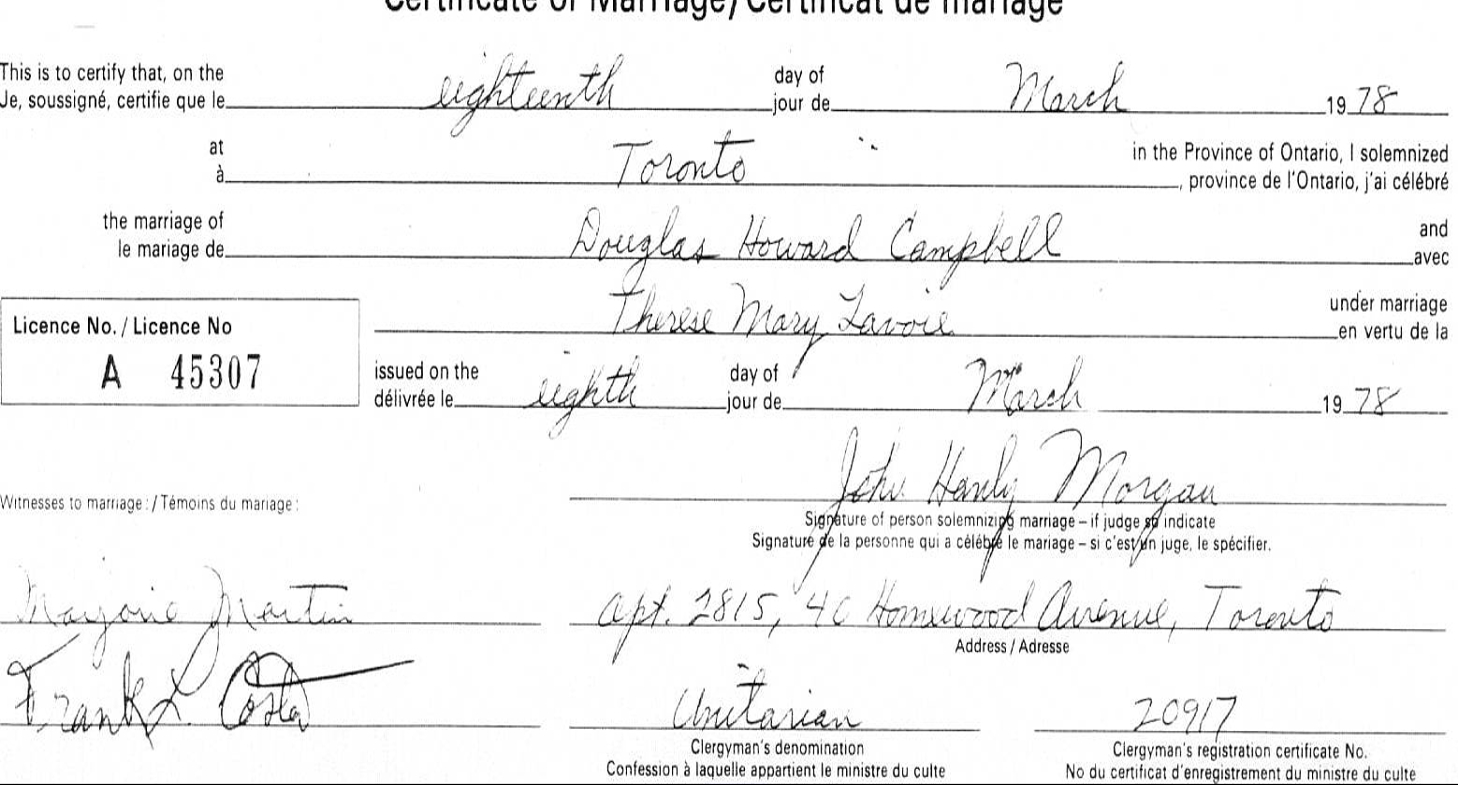 Certificate of Marriage/Certificat de mariage
This is to certify that, on the
Je, soussigné, certifie que le eighteenth day of jour de March 1978
at
à Toronto in the Province of Ontario, I solemnized
, province de l'Ontario, j'ai célébré
the marriage of
le mariage de Douglas Howard Campbell and
avec
Therese Mary Lavoie under marriage
en vertu de la
Licence No. / Licence No
A 45307
issued on the
délivrée le eighth day of jour de March 1978
Witnesses to marriage: / Témoins du mariage:
John Hanly Morgan
Signature of person solemnizing marriage – if judge so indicate
Signature de la personne qui a célébré le mariage – si c'est un juge, le spécifier.
Marjorie Martin
Apt. 2815, 40 Homewood Avenue, Toronto
Address / Adresse
Frank L Costa
Unitarian
Clergyman's denomination
Confession à laquelle appartient le ministre du culte
20917
Clergyman's registration certificate No.
No du certificat d'enregistrement du ministre du culte